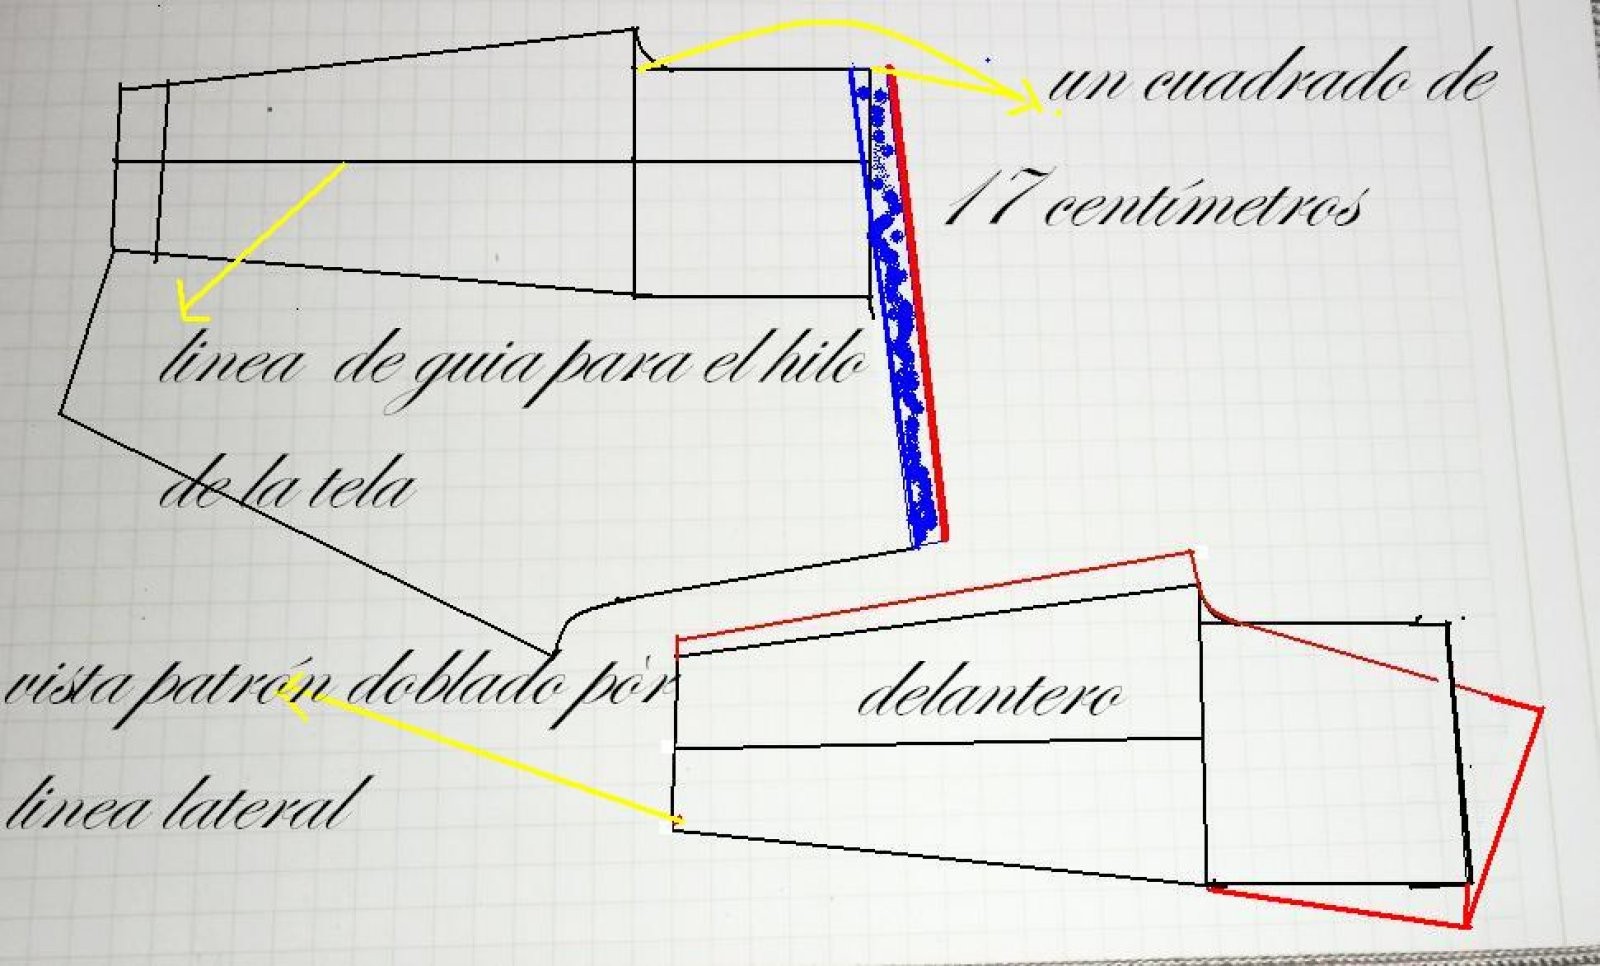 un cuadrado de
17 centímetros
linea de guia para el hilo
de la tela
vista patrón doblado pòr
delantero
linea lateral